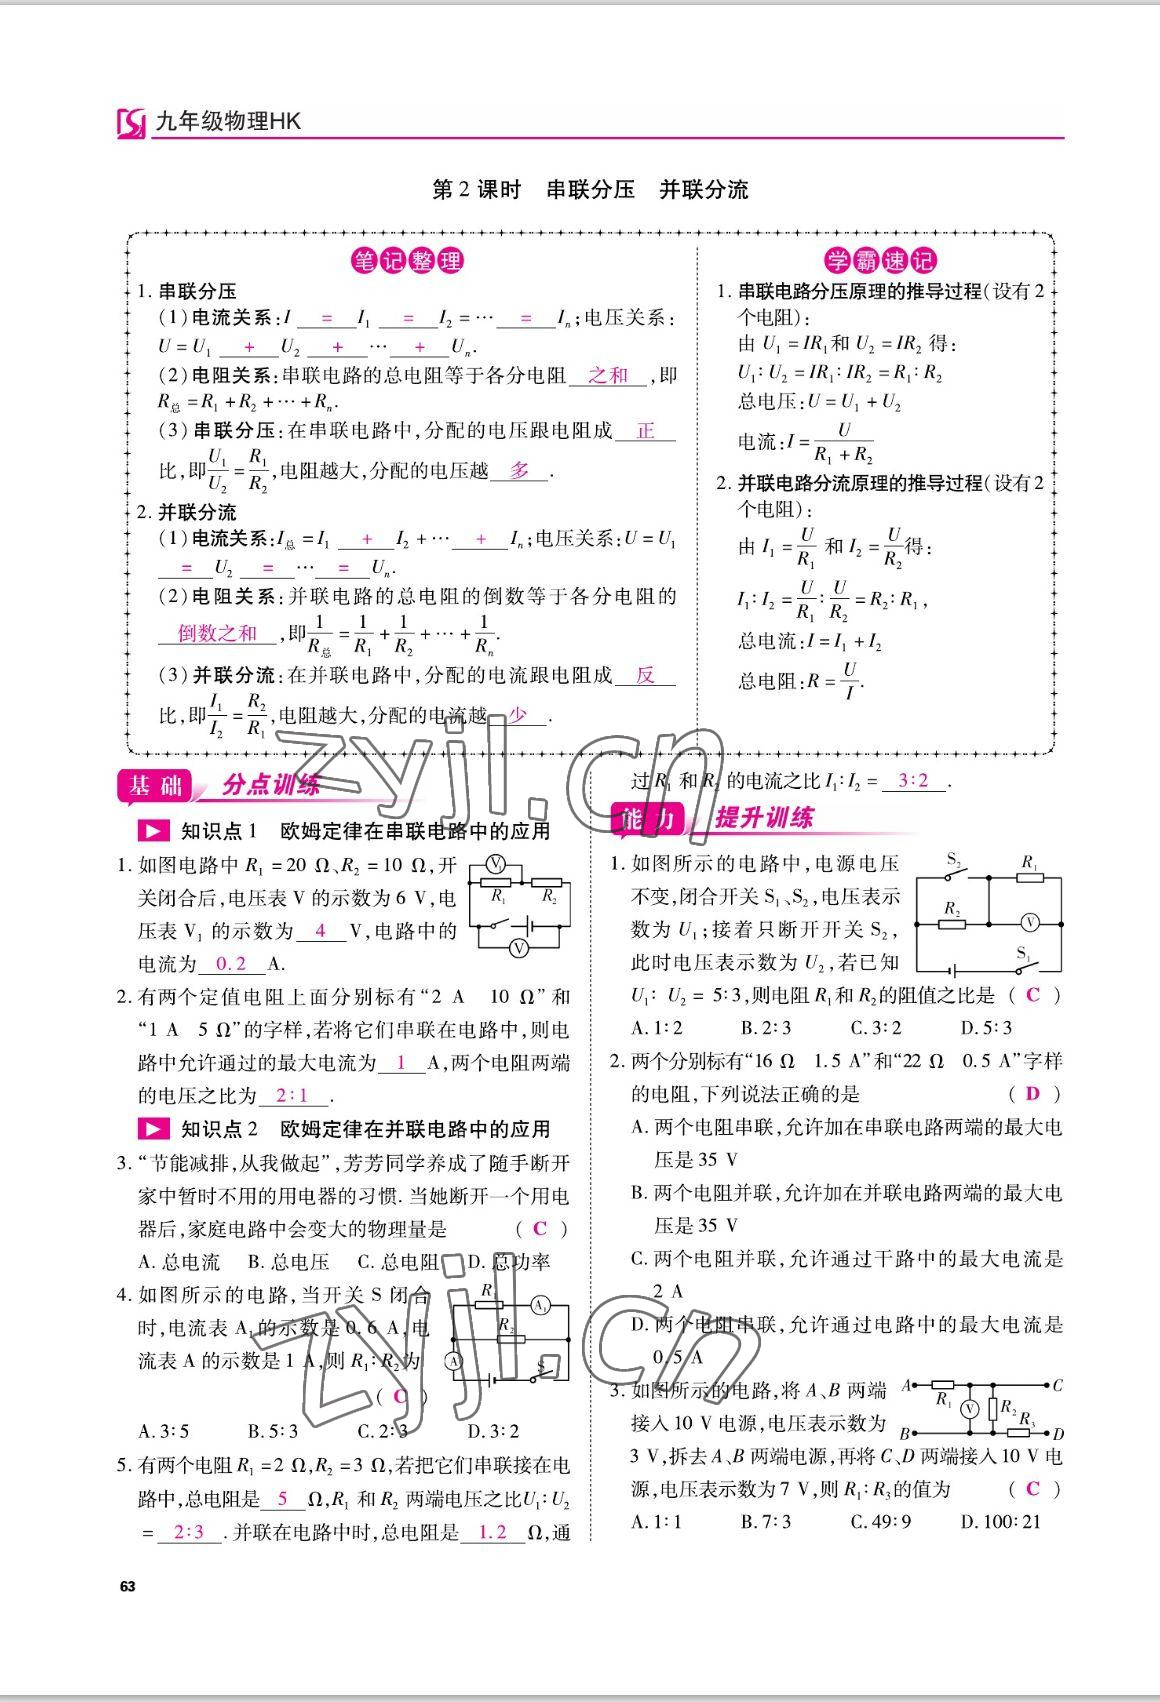 九年级物理HK
第2课时 串联分压 并联分流
笔记整理
1. 串联分压
(1)电流关系:I = I₁ = I₂=… = Iₙ;电压关系:
U=U₁ + U₂ + … + Uₙ.
(2)电阻关系:串联电路的总电阻等于各分电阻 之和 ,即
R总=R₁+R₂+…+Rₙ.
(3)串联分压:在串联电路中,分配的电压跟电阻成 正
比,即U₁/U₂=R₁/R₂,电阻越大,分配的电压越 多 .
2. 并联分流
(1)电流关系:I总=I₁ + I₂+… + Iₙ;电压关系:U=U₁
= U₂ = … = Uₙ.
(2)电阻关系:并联电路的总电阻的倒数等于各分电阻的
倒数之和 ,即1/R总=1/R₁+1/R₂+…+1/Rₙ.
(3)并联分流:在并联电路中,分配的电流跟电阻成 反
比,即I₁/I₂=R₂/R₁,电阻越大,分配的电流越 少 .
学霸速记
1. 串联电路分压原理的推导过程(设有2
个电阻):
由U₁=IR₁和U₂=IR₂得:
U₁:U₂=IR₁:IR₂=R₁:R₂
总电压:U=U₁+U₂
电流:I=U/(R₁+R₂)
2. 并联电路分流原理的推导过程(设有2
个电阻):
由I₁=U/R₁和I₂=U/R₂得:
I₁:I₂=U/R₁:U/R₂=R₂:R₁,
总电流:I=I₁+I₂
总电阻:R=U/I.
基础 分点训练
知识点1 欧姆定律在串联电路中的应用
1. 如图电路中R₁=20 Ω、R₂=10 Ω,开
关闭合后,电压表V的示数为6 V,电
压表V₁的示数为 4 V,电路中的
电流为 0.2 A.
V₁
R₁ R₂
V
2. 有两个定值电阻上面分别标有“2 A 10 Ω”和
“1 A 5 Ω”的字样,若将它们串联在电路中,则电
路中允许通过的最大电流为 1 A,两个电阻两端
的电压之比为 2:1 .
知识点2 欧姆定律在并联电路中的应用
3. “节能减排,从我做起”,芳芳同学养成了随手断开
家中暂时不用的用电器的习惯. 当她断开一个用电
器后,家庭电路中会变大的物理量是 ( C )
A. 总电流 B. 总电压 C. 总电阻 D. 总功率
4. 如图所示的电路,当开关S闭合
时,电流表A₁的示数是0.6 A,电
流表A的示数是1 A,则R₁:R₂为
( C )
R₁ A₁
R₂
A S
A. 3:5 B. 5:3 C. 2:3 D. 3:2
5. 有两个电阻R₁=2 Ω,R₂=3 Ω,若把它们串联接在电
路中,总电阻是 5 Ω,R₁和R₂两端电压之比U₁:U₂
= 2:3 .并联在电路中时,总电阻是 1.2 Ω,通
过R₁和R₂的电流之比I₁:I₂= 3:2 .
能力 提升训练
1. 如图所示的电路中,电源电压
不变,闭合开关S₁、S₂,电压表示
数为U₁;接着只断开开关S₂,
此时电压表示数为U₂,若已知
U₁:U₂=5:3,则电阻R₁和R₂的阻值之比是 ( C )
S₂ R₁
R₂ V
S₁
A. 1:2 B. 2:3 C. 3:2 D. 5:3
2. 两个分别标有“16 Ω 1.5 A”和“22 Ω 0.5 A”字样
的电阻,下列说法正确的是 ( D )
A. 两个电阻串联,允许加在串联电路两端的最大电
压是35 V
B. 两个电阻并联,允许加在并联电路两端的最大电
压是35 V
C. 两个电阻并联,允许通过干路中的最大电流是
2 A
D. 两个电阻串联,允许通过电路中的最大电流是
0.5 A
3. 如图所示的电路,将A、B两端
接入10 V电源,电压表示数为
3 V,拆去A、B两端电源,再将C、D两端接入10 V电
源,电压表示数为7 V,则R₁:R₃的值为 ( C )
A C
R₁ V R₂
R₃
B D
A. 1:1 B. 7:3 C. 49:9 D. 100:21
63
zyjl.cn
zyjl.cn